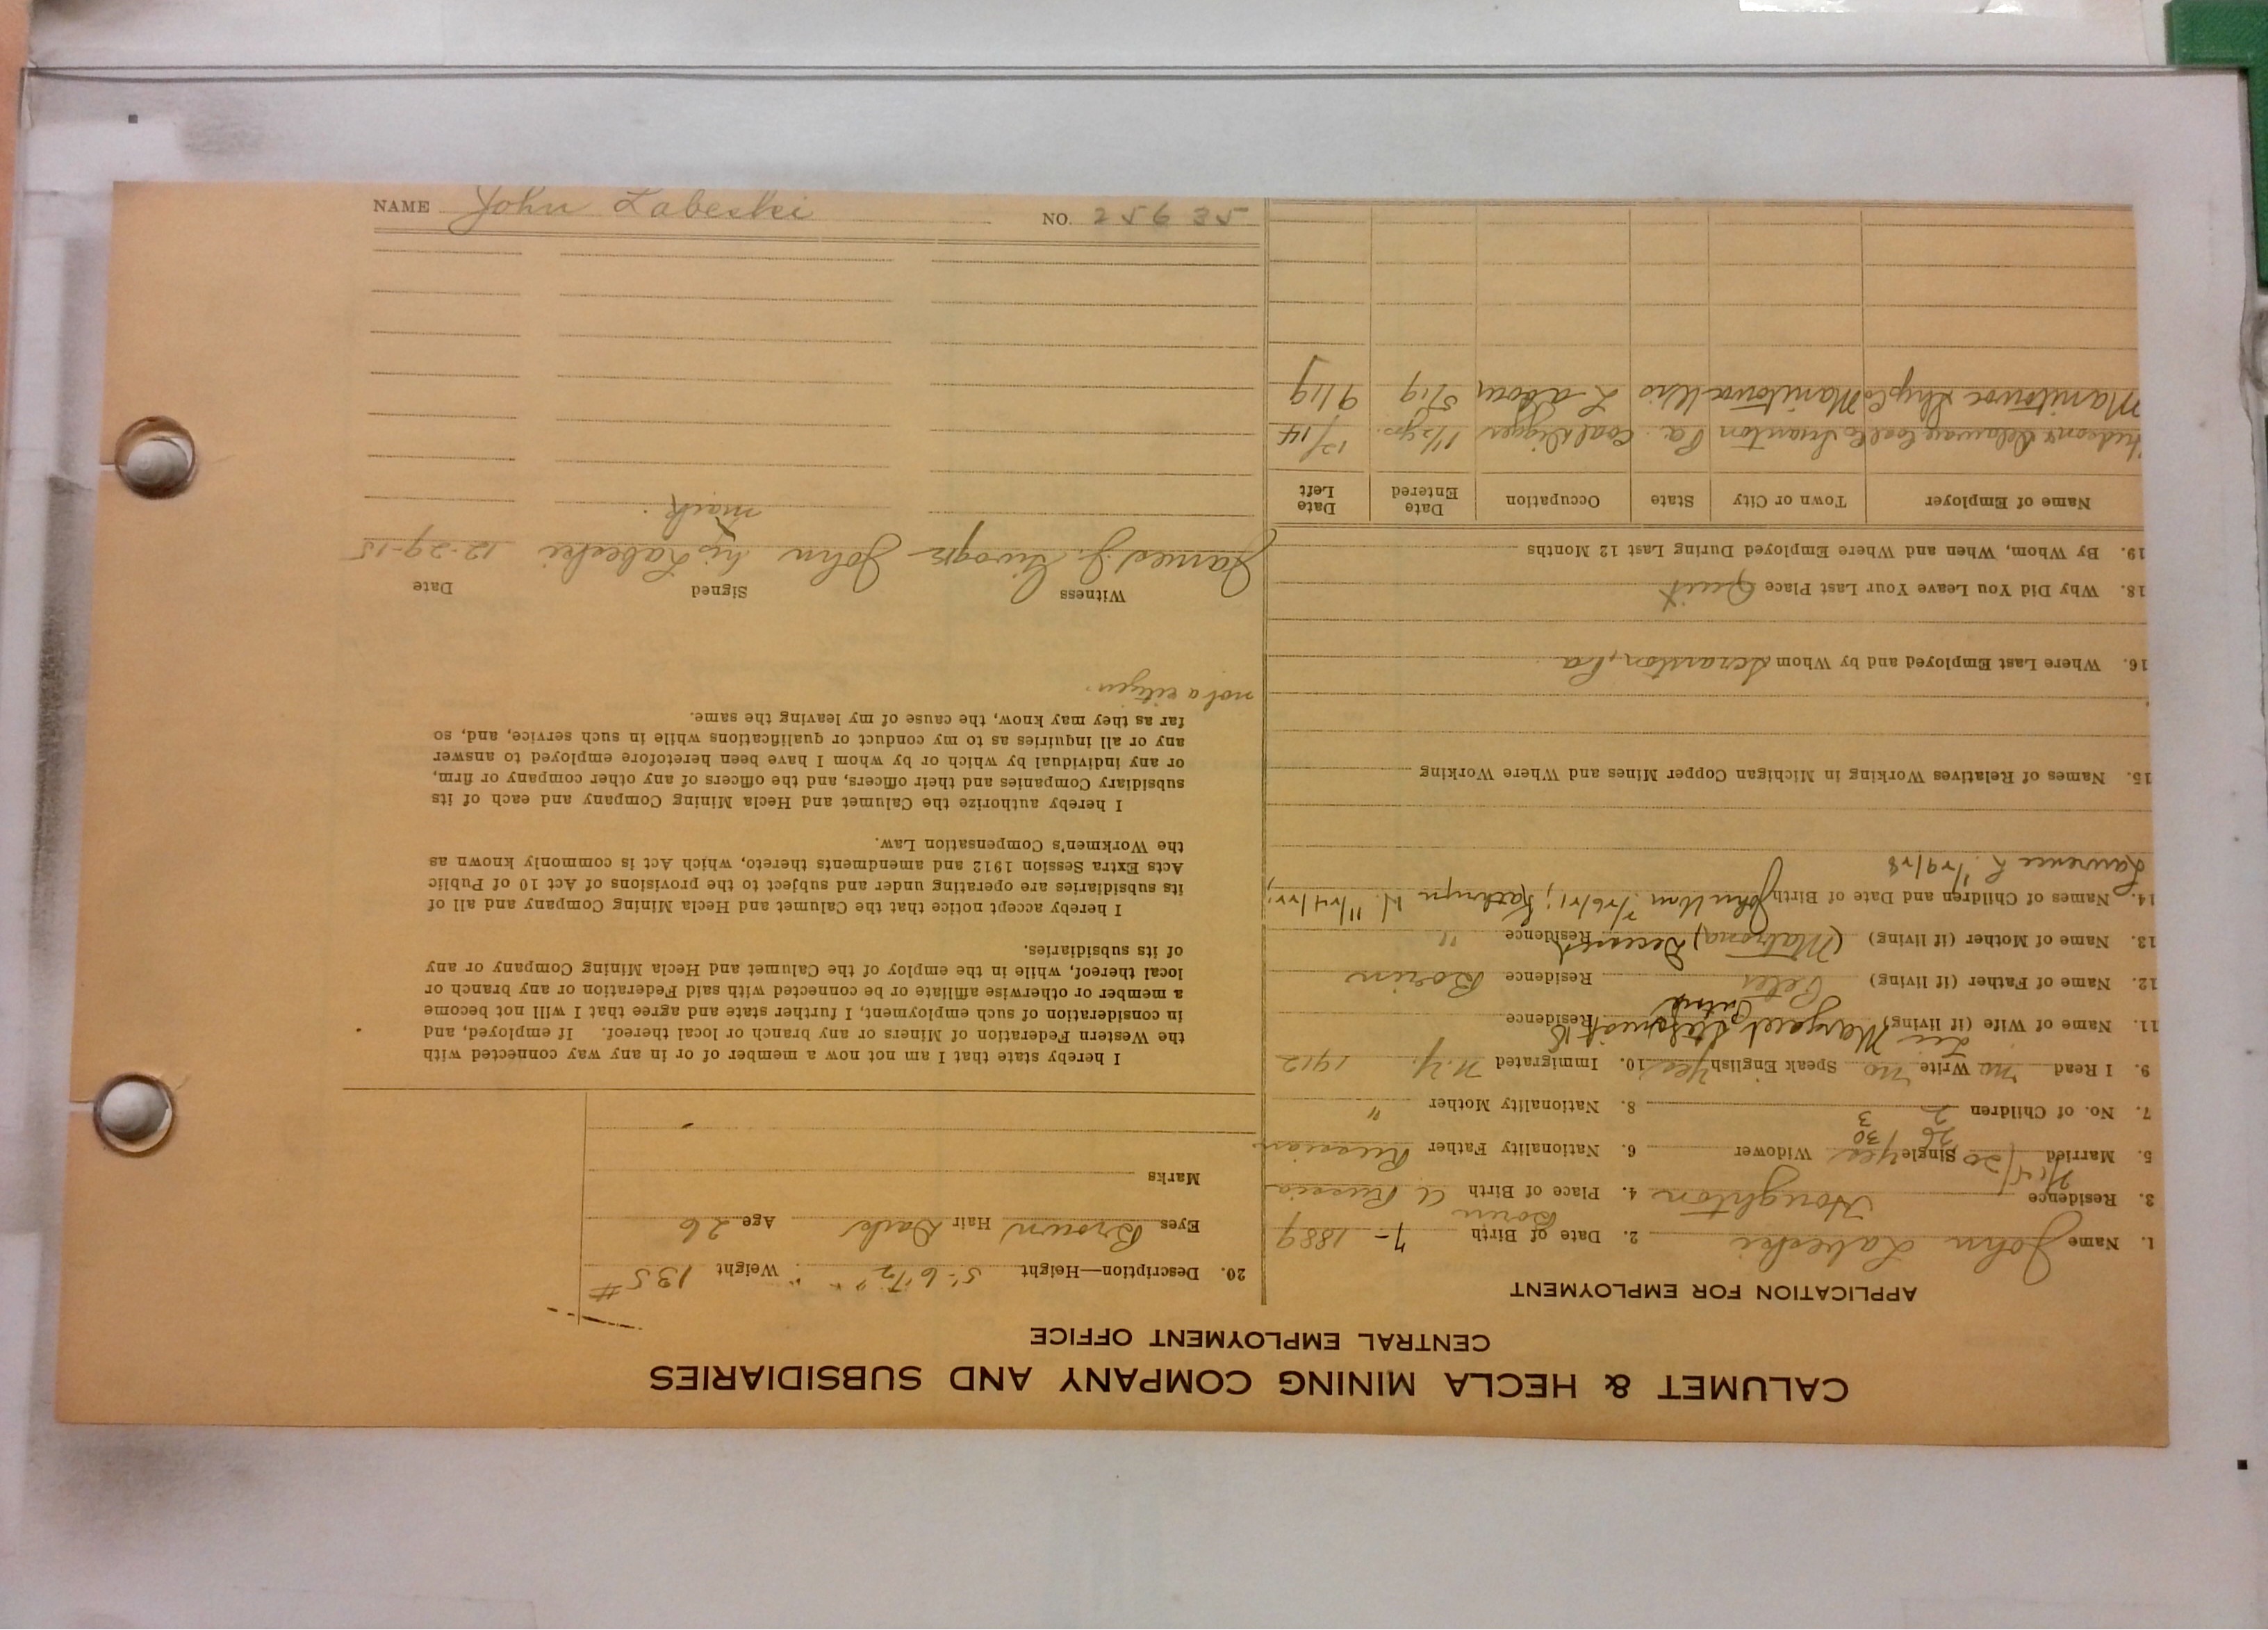 CALUMET & HECLA MINING COMPANY AND SUBSIDIARIES
CENTRAL EMPLOYMENT OFFICE
APPLICATION FOR EMPLOYMENT
1. Name John Labeski 2. Date of Birth 7- 1889
3. Residence Houghton 4. Place of Birth Russia
5. Married Single yes Widower 6. Nationality Father Russian
26 30
7. No. of Children 2 3 8. Nationality Mother "
9. I Read no Write no Speak English yes 10. Immigrated N.Y. 1912
11. Name of Wife (if living) Margaret Residence
12. Name of Father (if living) Peter Residence
13. Name of Mother (if living) Deceased Residence "
14. Names of Children and Date of Birth John Wm 7/26/21; Kathryn H. 11/24/22;
Lawrence L. 1/29/28
15. Names of Relatives Working in Michigan Copper Mines and Where Working
16. Where Last Employed and by Whom Scranton, Pa
18. Why Did You Leave Your Last Place Quit
19. By Whom, When and Where Employed During Last 12 Months
Name of Employer Town or City State Occupation Date Entered Date Left
Hudson & Delaware Coal Co Scranton Pa. Coal Digger 1 1/2 yrs. 12/14
Manitowoc Shp Co Manitowoc Wis Labor 5/19 9/19
20. Description—Height 5'-6 1/2" Weight 135 #
Eyes Brown Hair Dark Age 26
Marks
I hereby state that I am not now a member of or in any way connected with
the Western Federation of Miners or any branch or local thereof. If employed, and
in consideration of such employment, I further state and agree that I will not become
a member or otherwise affiliate or be connected with said Federation or any branch or
local thereof, while in the employ of the Calumet and Hecla Mining Company or any
of its subsidiaries.
I hereby accept notice that the Calumet and Hecla Mining Company and all of
its subsidiaries are operating under and subject to the provisions of Act 10 of Public
Acts Extra Session 1912 and amendments thereto, which Act is commonly known as
the Workmen's Compensation Law.
I hereby authorize the Calumet and Hecla Mining Company and each of its
subsidiary Companies and their officers, and the officers of any other company or firm,
or any individual by which or by whom I have been heretofore employed to answer
any or all inquiries as to my conduct or qualifications while in such service, and, so
far as they may know, the cause of my leaving the same.
not a citizen.
Witness Signed Date
James J. John his Labeski 12-29-15
X
mark.
NAME John Labeski NO. 25635